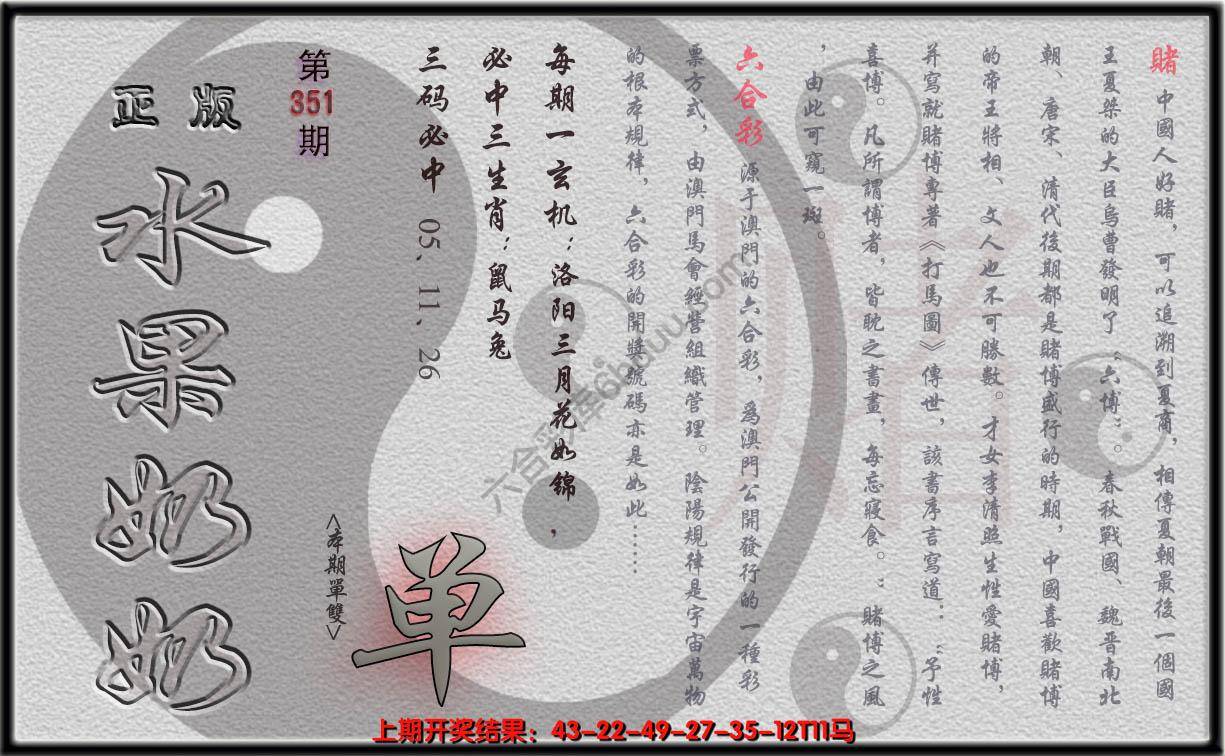 賭 中國人好賭，可以追溯到夏商，相傳夏朝最後一個國
王夏桀的大臣烏曹發明了“六博”。春秋戰國、魏晋南北
朝、唐宋、清代後期都是賭博盛行的時期，中國喜歡賭博
的帝王將相、文人也不可勝數。才女李清照生性愛賭博，
并寫就賭博專著《打馬圖》傳世，該書序言寫道：“予性
喜博。凡所謂博者，皆耽之書畫，每忘寢食。”賭博之風
，由此可窺一斑。
六合彩 源于澳門的六合彩，為澳門公開發行的一種彩
票方式，由澳門馬會經營組織管理。陰陽規律是宇宙萬物
的根本規律，六合彩的開獎號碼亦是如此……
每期一玄机：洛阳三月花如锦，
必中三生肖：鼠马兔
三码必中 05. 11. 26
<本期單雙>
单
第
351
期
正版
水果奶奶
賭
上期开奖结果：43-22-49-27-35-12T11马